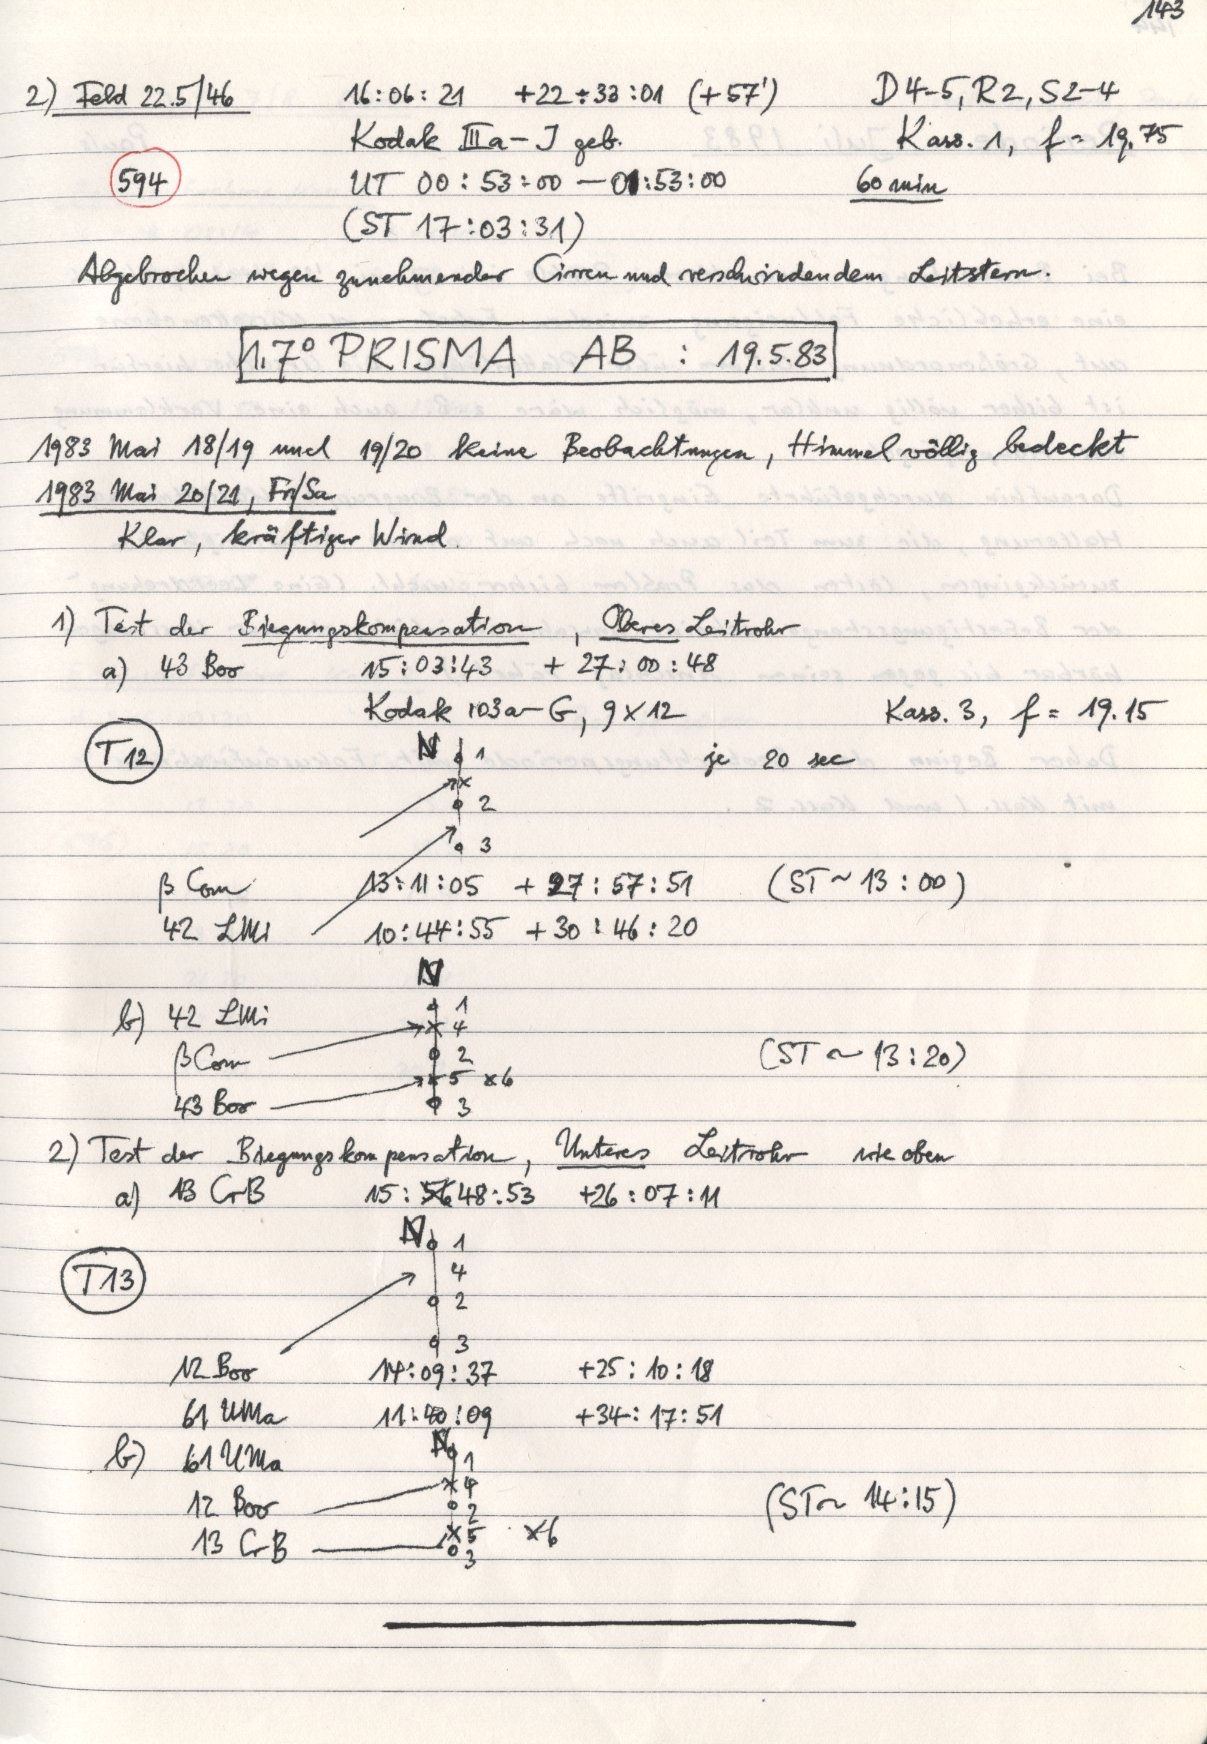 143
2) Feld 22.5/46 16:06:21 +22:33:01 (+57') D4-5, R2, S2-4
Kodak IIIa-J geb. Kass. 1, f = 19.75
594 UT 00:53:00 — 01:53:00 60 min
(ST 17:03:31)
Abgebrochen wegen zunehmender Cirren und verschwindendem Leitstern.
1.7° PRISMA AB : 19.5.83
1983 Mai 18/19 und 19/20 keine Beobachtungen, Himmel völlig bedeckt
1983 Mai 20/21, Fr/Sa
Klar, kräftiger Wind.
1) Test der Biegungskompensation, Oberes Leitrohr
a) 43 Boo 15:03:43 + 27:00:48
Kodak 103a-G, 9x12 Kass. 3, f = 19.15
T12 N 1 je 20 sec
x
2
3
β Com 13:11:05 + 27:57:51 (ST ~ 13:00)
42 LMi 10:44:55 +30:46:20
N
b) 42 LMi 1
x 4
β Com 2 (ST ~ 13:20)
x 5 x6
43 Boo 3
2) Test der Biegungskompensation, Unteres Leitrohr wie oben
a) 13 CrB 15:48:53 +26:07:11
N 1
T13 4
2
3
12 Boo 14:09:37 +25:10:18
61 UMa 11:40:09 +34:17:51
b) 61 UMa N 1
x 4
12 Boo 2 (ST~ 14:15)
x 5 x6
13 CrB 3